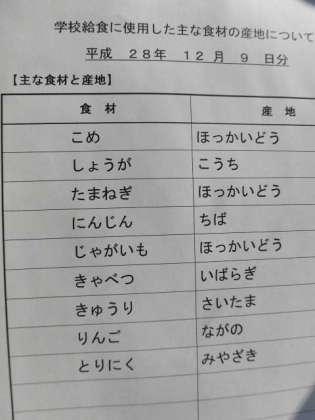 学校給食に使用した主な食材の産地について
平成 28年 12 月 9 日分
【主な食材と産地】
食 材 産 地
こめ ほっかいどう
しょうが こうち
たまねぎ ほっかいどう
にんじん ちば
じゃがいも ほっかいどう
きゃべつ いばらぎ
きゅうり さいたま
りんご ながの
とりにく みやざき